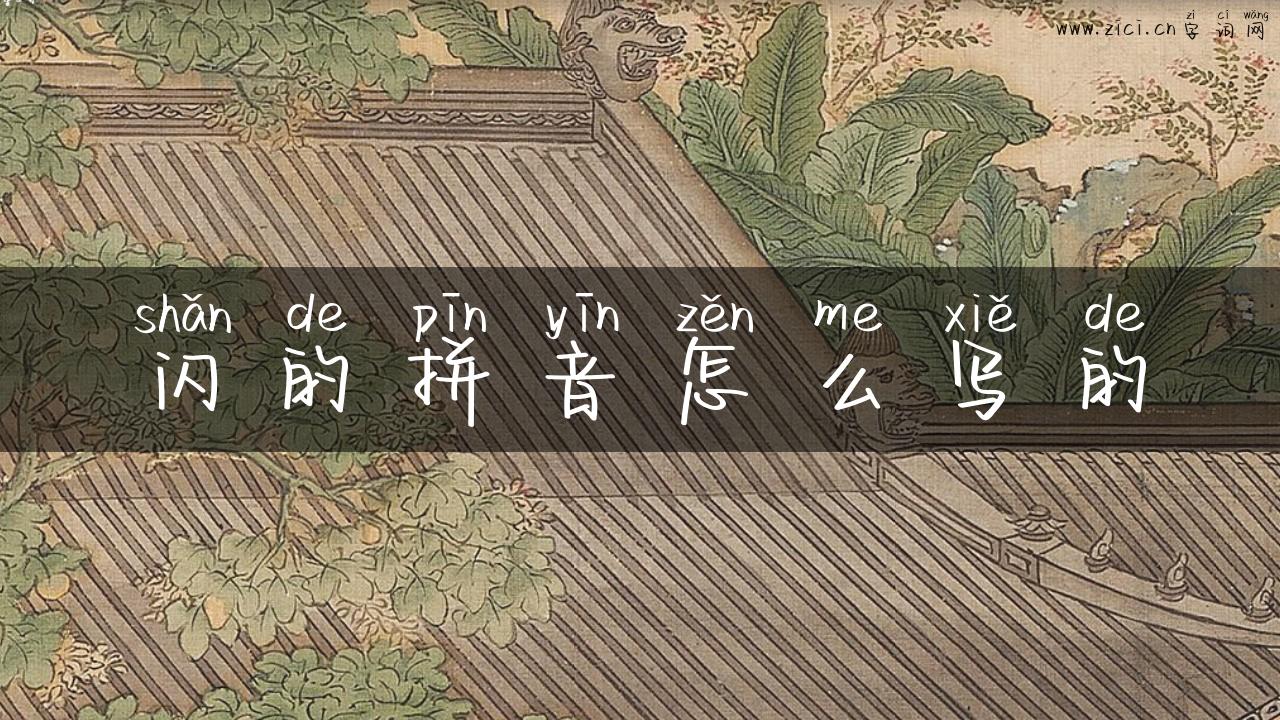 zì cí wǎng
www.zici.cn 字词网
shǎn de pīn yīn zěn me xiě de
闪的拼音怎么写的